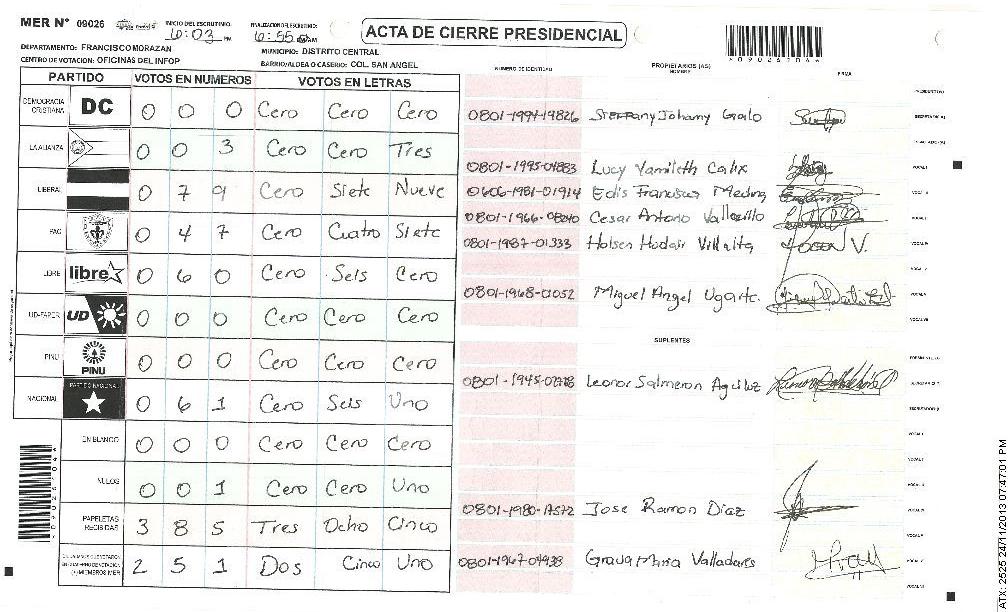 MER Nº 09026
INICIO DEL ESCRUTINIO:
FINALIZACION DEL ESCRUTINIO:
6:55
ACTA DE CIERRE PRESIDENCIAL
DEPARTAMENTO: FRANCISCO MORAZAN
MUNICIPIO: DISTRITO CENTRAL
CENTRO DE VOTACION: OFICINAS DEL INFOP
BARRIO/ALDEA O CASERIO: COL. SAN ANGEL
NUMERO DE IDENTIDAD PROPIETARIOS (AS) NOMBRE FIRMA
PARTIDO VOTOS EN NUMEROS VOTOS EN LETRAS
DEMOCRACIA CRISTIANA DC 0 0 0 Cero Cero Cero
LA ALIANZA 0 0 3 Cero Cero Tres
LIBERAL 0 7 9 Cero Siete Nueve
PAC 0 4 7 Cero Cuatro Siete
LIBRE libre 0 6 0 Cero Seis Cero
UD-FAPER UD 0 0 0 Cero Cero Cero
PINU PINU 0 0 0 Cero Cero Cero
NACIONAL PARTIDO NACIONAL 0 6 1 Cero Seis Uno
EN BLANCO 0 0 0 Cero Cero Cero
NULOS 0 0 1 Cero Cero Uno
PAPELETAS RECIBIDAS 3 8 5 Tres Ocho Cinco
2 5 1 Dos Cinco Uno
Steffany Johamy Galo
Lucy Yamileth Calix
0606-1981-01914 Edis Francisco Medina
Cesar Antonio Vallecillo
0801-1987-01333
0801-1968-01052 Miguel Angel Ugarte.
SUPLENTES
Leonor Salmeron Aguiluz
Jose Ramon Diaz
0801-1967-04938 Maria Valladares
ATX: 2525 24/11/2013 07:47:01 PM